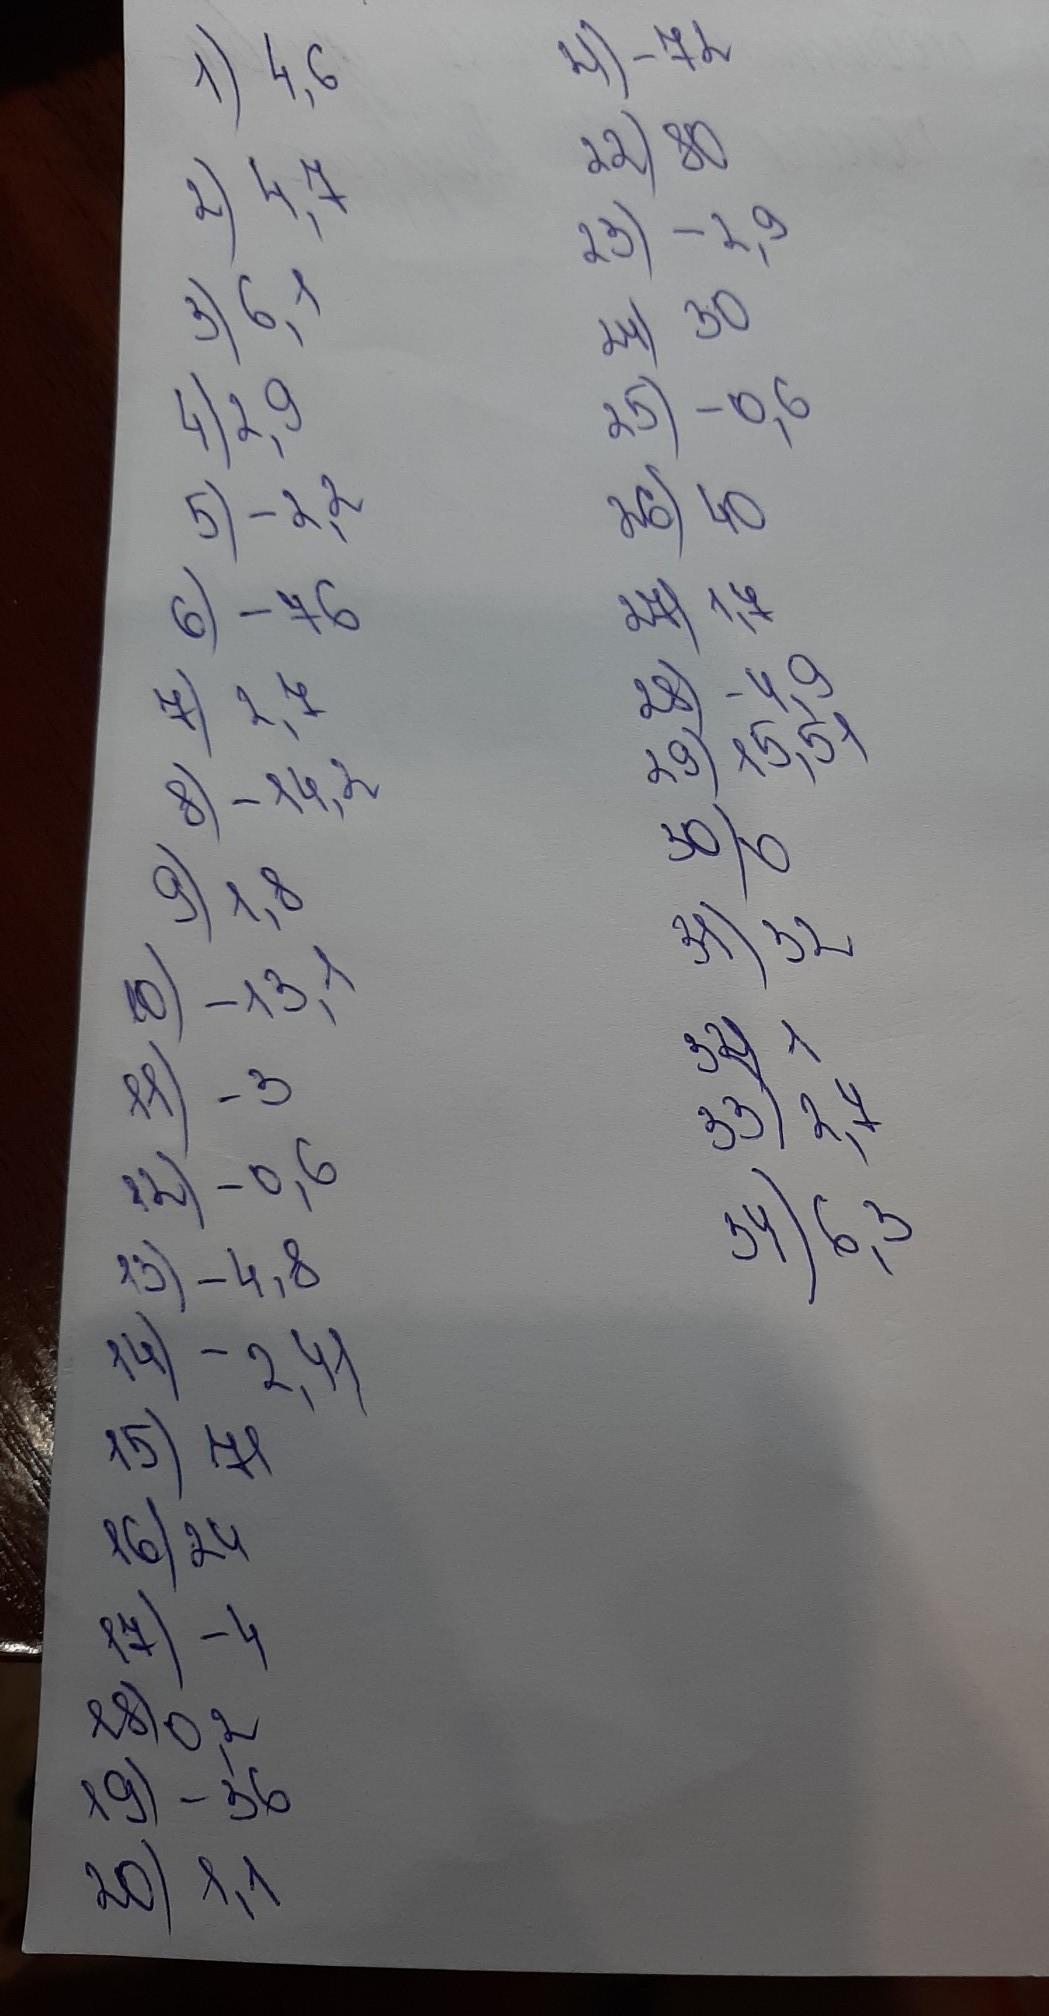 1) 4,6
2) 4,7
3) 6,1
4) 2,9
5) -2,2
6) -76
7) 2,7
8) -14,2
9) 1,8
10) -13,1
11) -3
12) -0,6
13) -4,8
14) -2,41
15) 71
16) 24
17) -4
18) 0,2
19) -36
20) 1,1
21) -72
22) 80
23) -2,9
24) 30
25) -0,6
26) 40
27) 1,7
28) -4,9
29) 15,51
30) 0
31) 32
32) 1
33) 2,7
34) 6,3